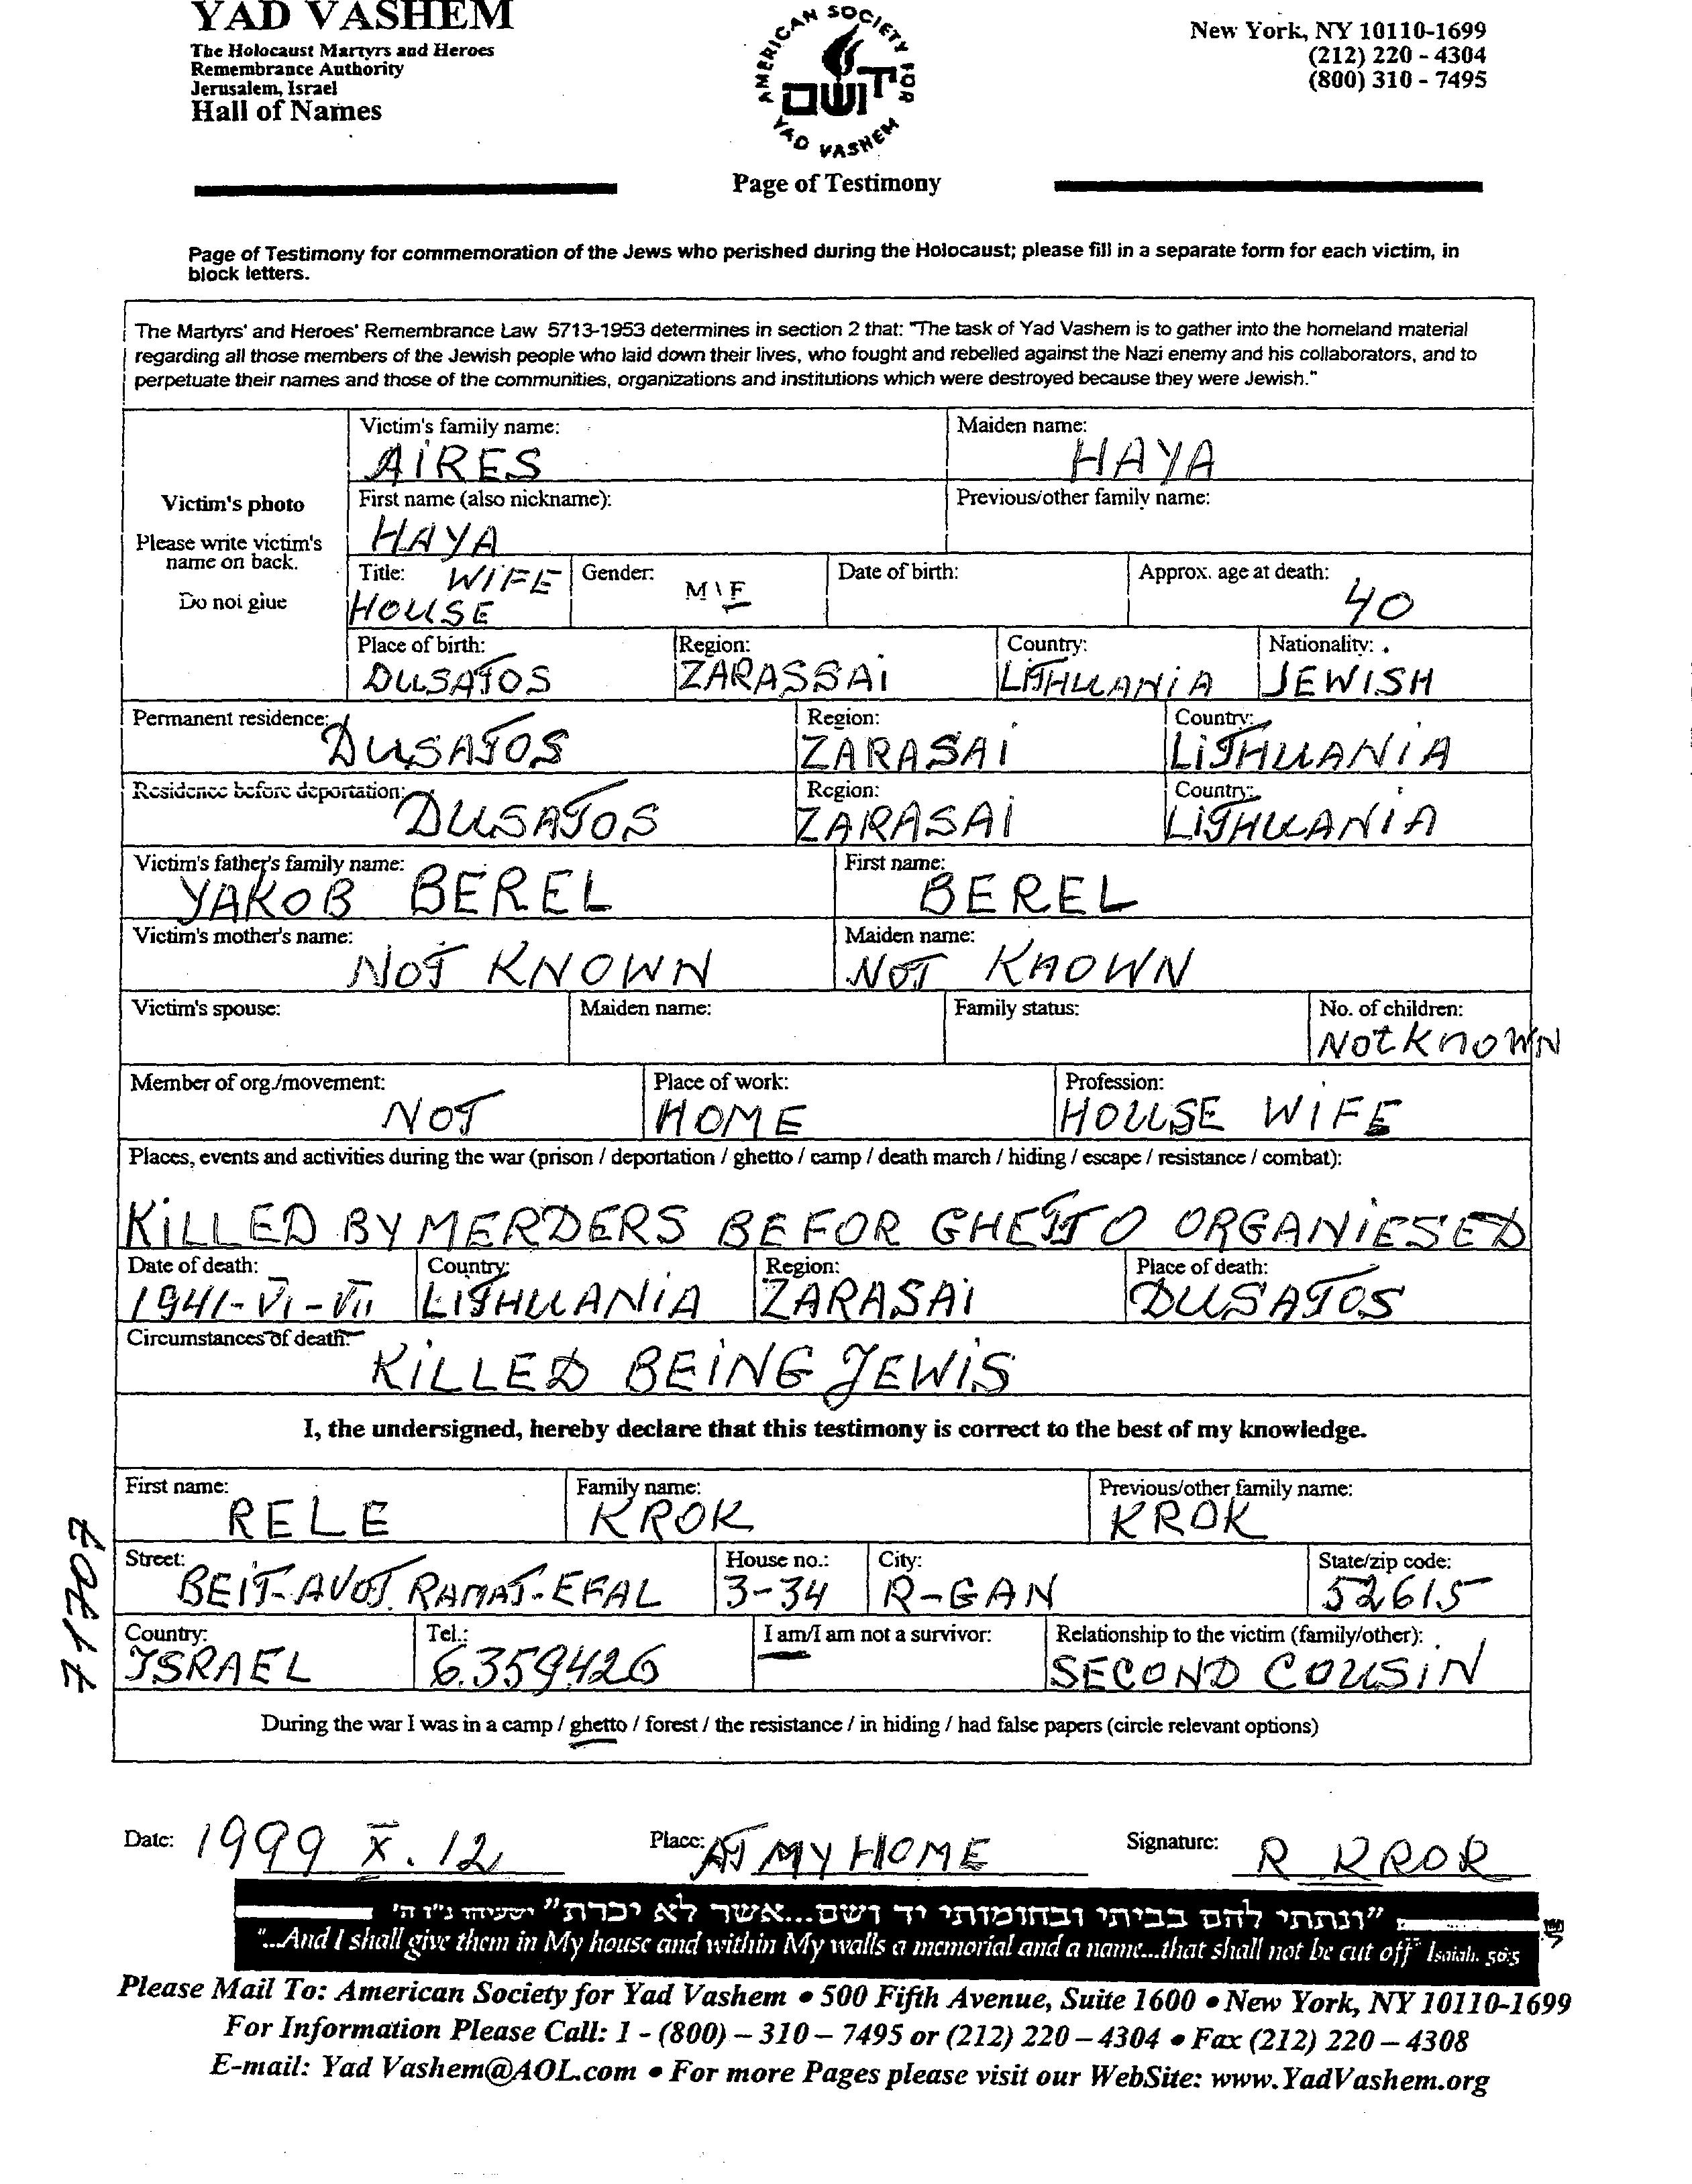 YAD VASHEM
The Holocaust Martyrs and Heroes
Remembrance Authority
Jerusalem, Israel
Hall of Names
AMERICAN SOCIETY FOR
ושם
YAD VASHEM
New York, NY 10110-1699
(212) 220 - 4304
(800) 310 - 7495
Page of Testimony
Page of Testimony for commemoration of the Jews who perished during the Holocaust; please fill in a separate form for each victim, in
block letters.
The Martyrs' and Heroes' Remembrance Law 5713-1953 determines in section 2 that: "The task of Yad Vashem is to gather into the homeland material
regarding all those members of the Jewish people who laid down their lives, who fought and rebelled against the Nazi enemy and his collaborators, and to
perpetuate their names and those of the communities, organizations and institutions which were destroyed because they were Jewish."
Victim's photo
Please write victim's
name on back.
Do not glue
Victim's family name: Maiden name:
AIRES HAYA
First name (also nickname): Previous/other family name:
HAYA
Title: WIFE Gender: M \ F Date of birth: Approx. age at death:
HOUSE 40
Place of birth: Region: Country: Nationality:
DUSATOS ZARASSAI LITHUANIA JEWISH
Permanent residence: Region: Country:
DUSATOS ZARASAI LITHUANIA
Residence before deportation: Region: Country:
DUSATOS ZARASAI LITHUANIA
Victim's father's family name: First name:
YAKOB BEREL BEREL
Victim's mother's name: Maiden name:
NOT KNOWN NOT KNOWN
Victim's spouse: Maiden name: Family status: No. of children:
NOT KNOWN
Member of org./movement: Place of work: Profession:
NOT HOME HOUSE WIFE
Places, events and activities during the war (prison / deportation / ghetto / camp / death march / hiding / escape / resistance / combat):
KILLED BY MERDERS BEFOR GHETTO ORGANIESED
Date of death: Country: Region: Place of death:
1941-VI-VII LITHUANIA ZARASAI DUSATOS
Circumstances of death:
KILLED BEING JEWIS
I, the undersigned, hereby declare that this testimony is correct to the best of my knowledge.
First name: Family name: Previous/other family name:
RELE KROK KROK
Street: House no.: City: State/zip code:
BEIT-AVOT RAMAT-EFAL 3-34 R-GAN 52615
Country: Tel.: I am/I am not a survivor: Relationship to the victim (family/other):
ISRAEL 6.359426 SECOND COUSIN
During the war I was in a camp / ghetto / forest / the resistance / in hiding / had false papers (circle relevant options)
71707
Date: 1999 X. 12 Place: AT MY HOME Signature: R KROK
"ונתתי להם בביתי ובחומותי יד ושם...אשר לא יכרת" ישעיהו נ"ו ה'
"...And I shall give them in My house and within My walls a memorial and a name...that shall not be cut off" Isaiah. 56:5
Please Mail To: American Society for Yad Vashem • 500 Fifth Avenue, Suite 1600 • New York, NY 10110-1699
For Information Please Call: 1 - (800) – 310 – 7495 or (212) 220 – 4304 • Fax (212) 220 – 4308
E-mail: Yad Vashem@AOL.com • For more Pages please visit our WebSite: www.YadVashem.org